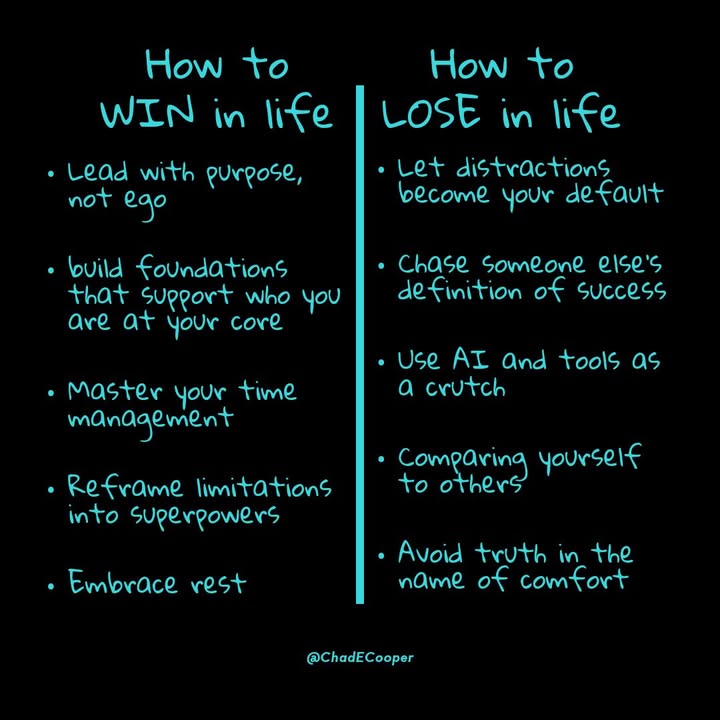 How to
WIN in life
• Lead with purpose,
not ego
• build foundations
that support who you
are at your core
• Master your time
management
• Reframe limitations
into superpowers
• Embrace rest
How to
LOSE in life
• Let distractions
become your default
• Chase someone else's
definition of success
• Use AI and tools as
a crutch
• Comparing yourself
to others
• Avoid truth in the
name of comfort
@ChadECooper